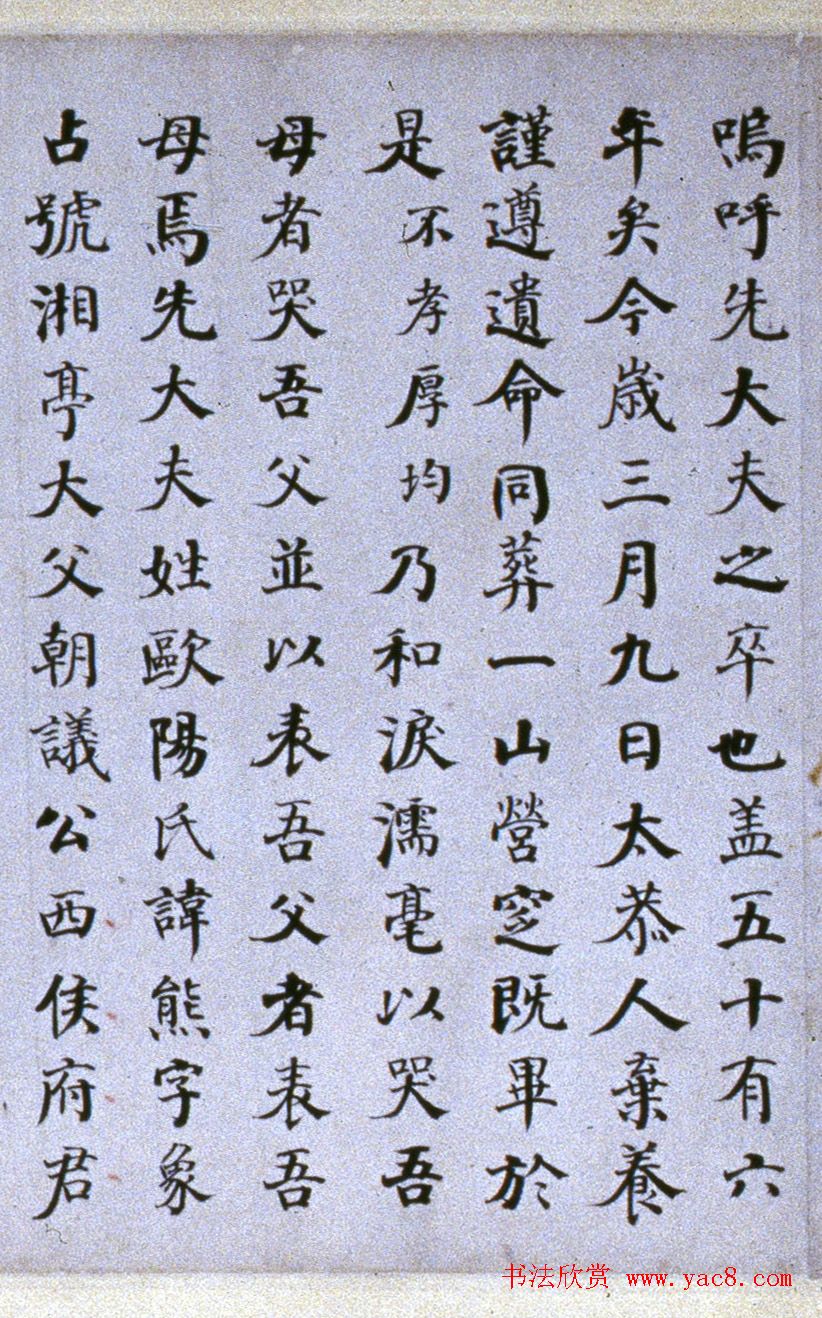 嗚呼先大夫之卒也盖五十有六
年矣今歲三月九日太恭人棄養
謹遵遺命同葬一山營窆既畢於
是不孝厚均乃和淚濡毫以哭吾
母者哭吾父並以表吾父者表吾
母焉先大夫姓歐陽氏諱熊字象
占號湘亭大父朝議公西侯府君
书法欣赏 www.yac8.com